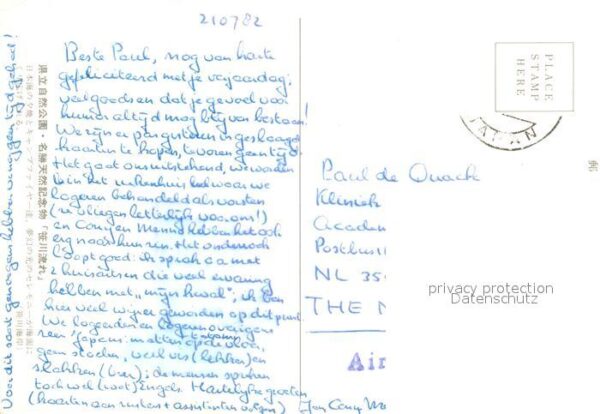 210782
Beste Paul, nog van harte
gefeliciteerd met je verjaardag;
veel goeds en dat je gevoel voor
humor altijd mag blijven bestaan!
We zijn er pas gisteren in geslaagd
kaarten te kopen, tevoren geen tijd.
Het gaat ons uitstekend, we worden
in het ziekenhuis waar we
logeren behandeld als vorsten
(ze vliegen letterlijk voor ons!)
en Cony en Menno hebben het ook
erg naar hun zin. Het onderzoek
loopt goed: ik sprak a met
2 huisartsen die veel ervaring
hebben met "mijn kwal"; ik ben
hier veel wijzer geworden op dit punt.
We logeerden en logeren overigens
zeer Japans: matten op de vloer,
geen stoelen, veel vis (lekker) en
slokken (bier); de mensen spreken
toch wel (wat) Engels. Hartelijke groeten
(kaarten aan zusters + assistenten volgen) Jan Cony Me
Voor dit soort genoegens hebben we nog geen tijd gehad!
県立自然公園・名勝天然記念物「笹川流れ」
PLACE
STAMP
HERE
JAPAN
郵
Paul de Quack
Kliniek
Academ
Postbus
NL 35
THE N
Air
privacy protection
Datenschutz